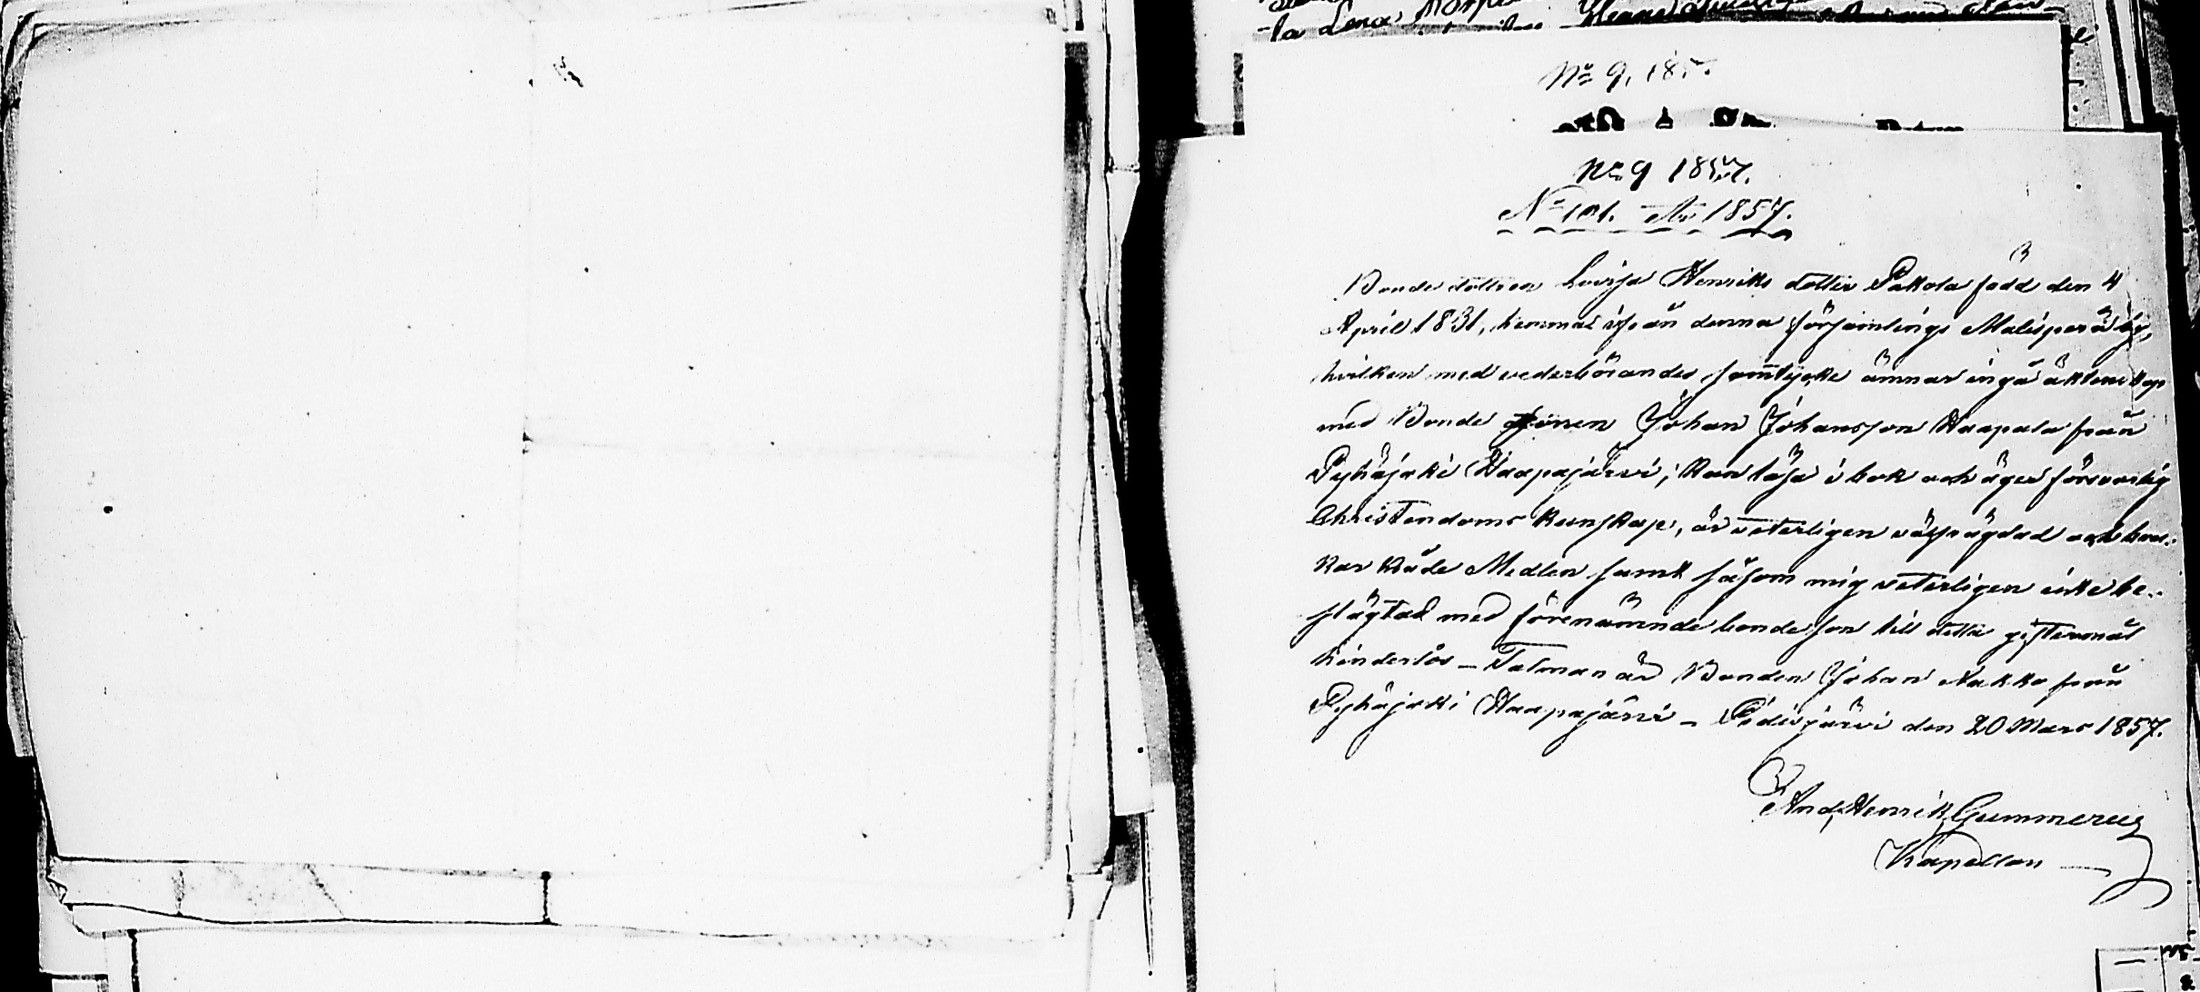 -la Lena,
No 9, 185
No 9 1857.
No 101. År 1857.
Bonde dottren Lovisa Henriks dotter Pakola född den 4
April 1831, hemma ifrån denna församlings Malisperä by,
hvilken med vederbörandes samtycke ämnar ingå äktenskap
med Bonde sonen Johan Johansson Haapala från
Pyhäjoki Haapajärvi; kan läsa i bok och äger försvarlig
Christendoms kunskap, är veterligen välfrägdad och bru-
kar både Medlen samt såsom mig veterligen icke be-
slägtad med förenämnde bonde son till detta giftermål
hinderlös – Talman är Bonden Johan Nakko från
Pyhäjoki Haapajärvi – Pidisjärvi den 20 Mars 1857.
And. Henrik Gummerus
Kapellan